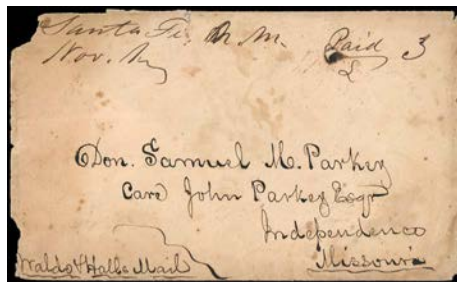 Santa Fe, N. M. Paid 3
Nov.
Don. Samuel M. Parkey
Care John Parkey Esqr
Independence
Missouri
Waldo & Halls Mail